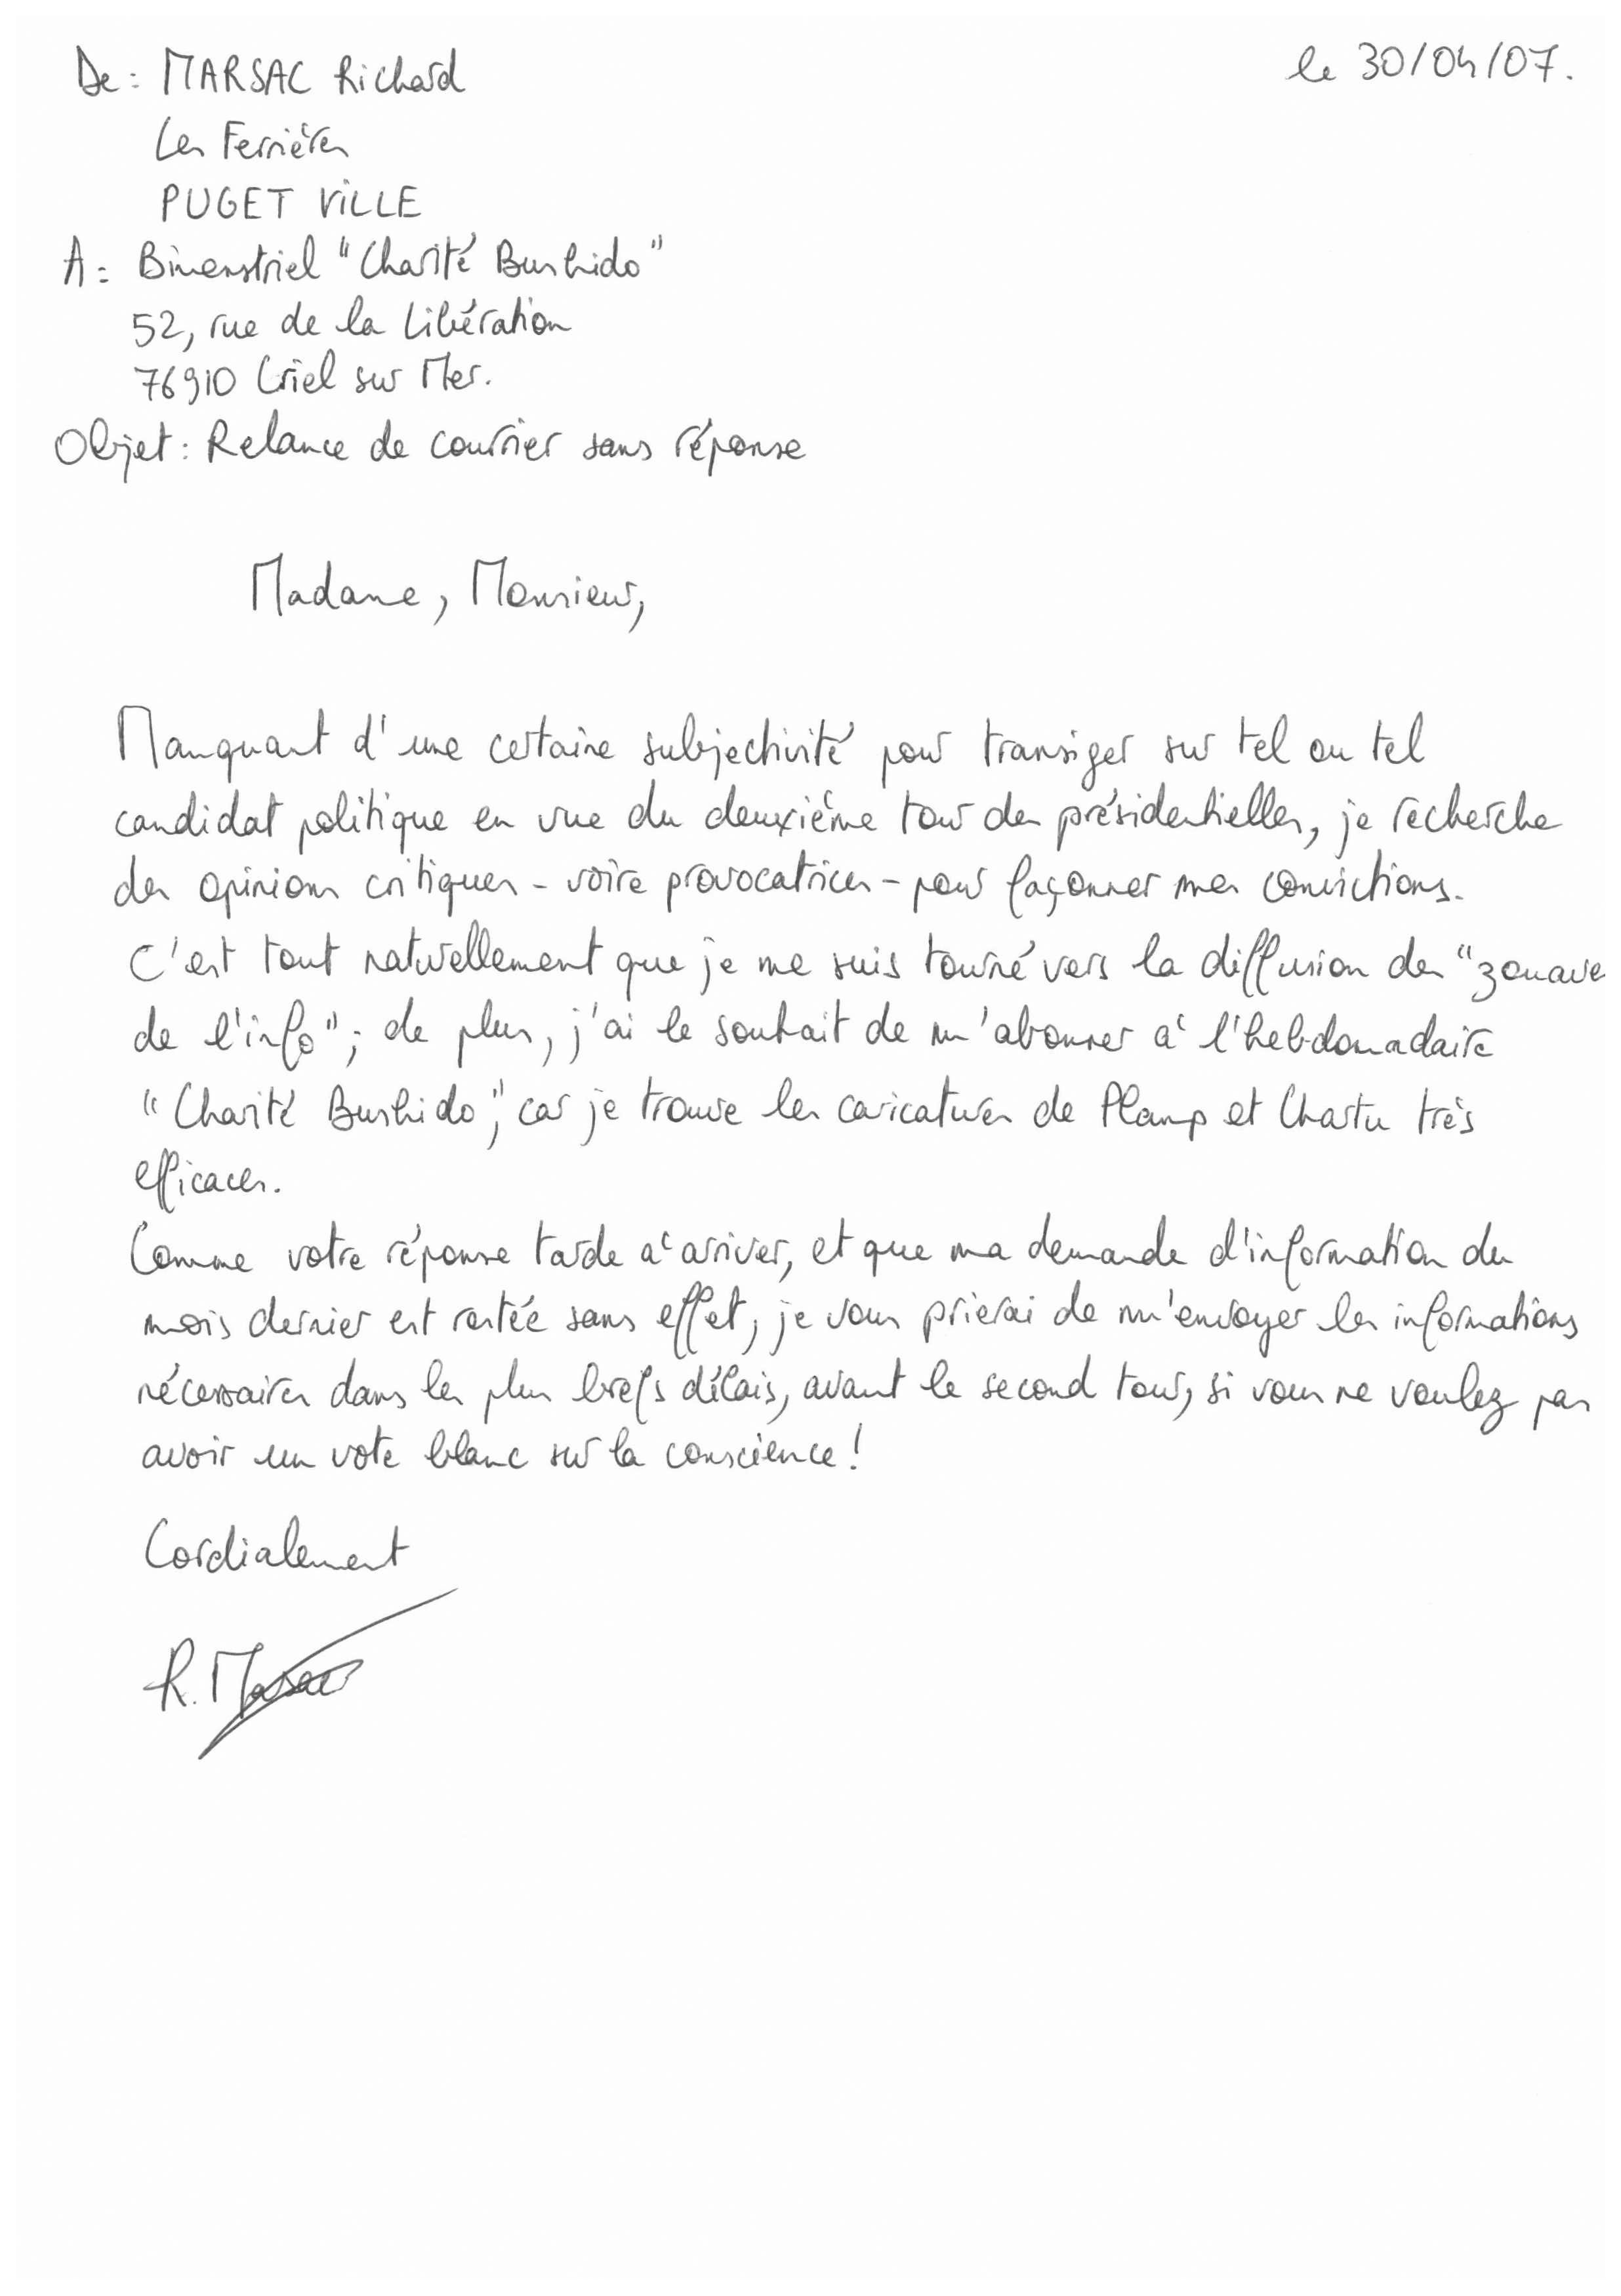 De : MARSAC Richard
le 30/04/07.
Les Ferrières
PUGET VILLE
A : Bimenstriel "Charité Bushido"
52, rue de la Libération
76910 Criel sur Mer.
Objet : Relance de courrier sans réponse
Madame, Monsieur,
Manquant d'une certaine subjectivité pour transiger sur tel ou tel
candidat politique en vue du deuxième tour des présidentielles, je recherche
des opinions critiques - voire provocatrices - pour façonner mes convictions.
C'est tout naturellement que je me suis tourné vers la diffusion des "zouaves
de l'info" ; de plus, j'ai le souhait de m'abonner à l'hebdomadaire
"Charité Bushido", car je trouve les caricatures de Plamp et Chartu très
efficaces.
Comme votre réponse tarde à arriver, et que ma demande d'information du
mois dernier est restée sans effet, je vous prierai de m'envoyer les informations
nécessaires dans les plus brefs délais, avant le second tour, si vous ne voulez pas
avoir un vote blanc sur la conscience !
Cordialement
R. Marsac